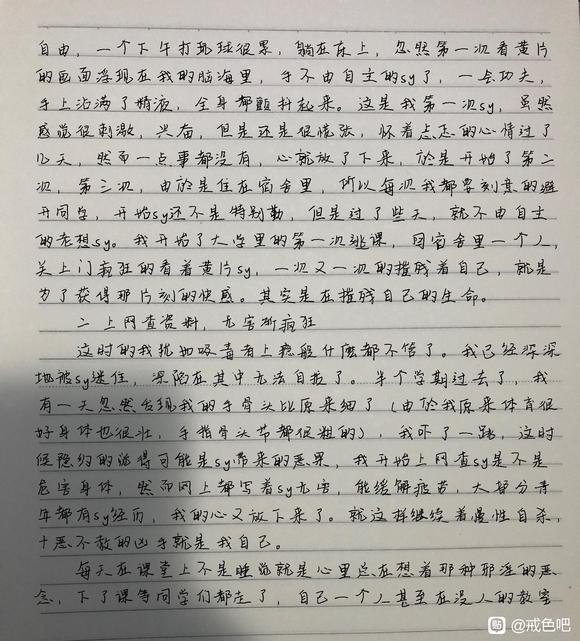 自由，一个下午打环球很累，躺在床上，忽然第一次看黄片
的画面浮现在我的脑海里，手不由自主的sy了，一会功夫，
手上沾满了精液，全身都颤抖起来。这是我第一次sy，虽然
感觉很刺激，兴奋，但是还是很慌张，怀着忐忑的心情过了
几天，然而一点事都没有，心就放了下来，於是开始了第二
次，第三次，由於是住在宿舍里，所以每次我都要刻意的避
开同学，开始sy还不是特别勤，但是过了些天，就不由自主
的老想sy。我开始了大学里的第一次逃课，回宿舍里一个人，
关上门疯狂的看着黄片sy，一次又一次的摧残着自己，就是
为了获得那片刻的快感。其实是在摧残自己的生命。
二 上网查资料，无害渐疯狂
这时的我犹如吸毒者上瘾般什麽都不管了。我已经深深
地被sy迷住，深陷在其中无法自拔了。半个学期过去了，我
有一天忽然发现我的手骨头比原来细了（由於我原来体育很
好身体也很壮，手指骨头节都很粗的），我吓了一跳，这时
候隐约的觉得可能是sy带来的恶果，我开始上网查sy是不是
危害身体，然而网上都写着sy无害，能缓解疲劳，大部分青
年都有sy经历，我的心又放下来了。就这样继续着慢性自杀，
十恶不赦的凶手就是我自己。
每天在课堂上不是睡觉就是心里总在想着那种邪淫的恶
念，下了课等同学们都走了，自己一个人甚至在没人的教室
贴 @戒色吧